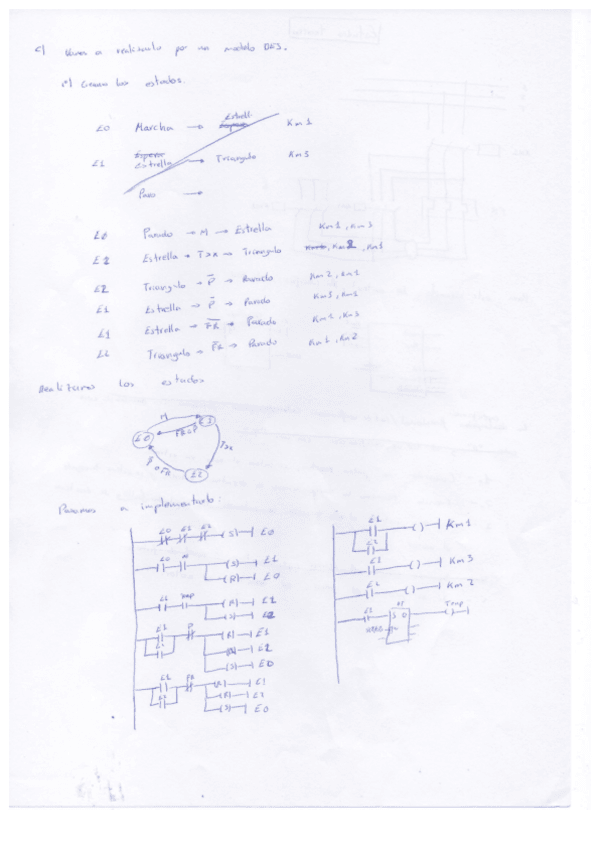 c) Vamos a realizarlo por un modelo DES.
1º) Crean los estados.
E0 Marcha → Estrell Km1
E1 Estrella → Triangulo Km3
Paro →
E0 Parado → M → Estrella Km1, Km3
E1 Estrella → T>x → Triangulo Km2, Km1
E2 Triangulo → P → Parado Km2, Km1
E1 Estrella → P → Parado Km3, Km1
E1 Estrella → FR → Parado Km1, Km3
E2 Triangulo → FR → Parado Km1, Km2
Realizamos los estados
M
E0 E1
FR o P
T>x
P o FR
E2
Pasamos a implementarlo:
E0 E1 E2 (S) E0
E0 M (S) E1
(R) E0
E1 Tmp (R) E1
(S) E2
E1 P (R) E1
E2 (R) E2
(S) E0
E1 FR (R) E1
E2 (R) E2
(S) E0
E1 ( ) Km1
E2
E1 ( ) Km3
E2 ( ) Km2
E1 S Q ( ) Tmp